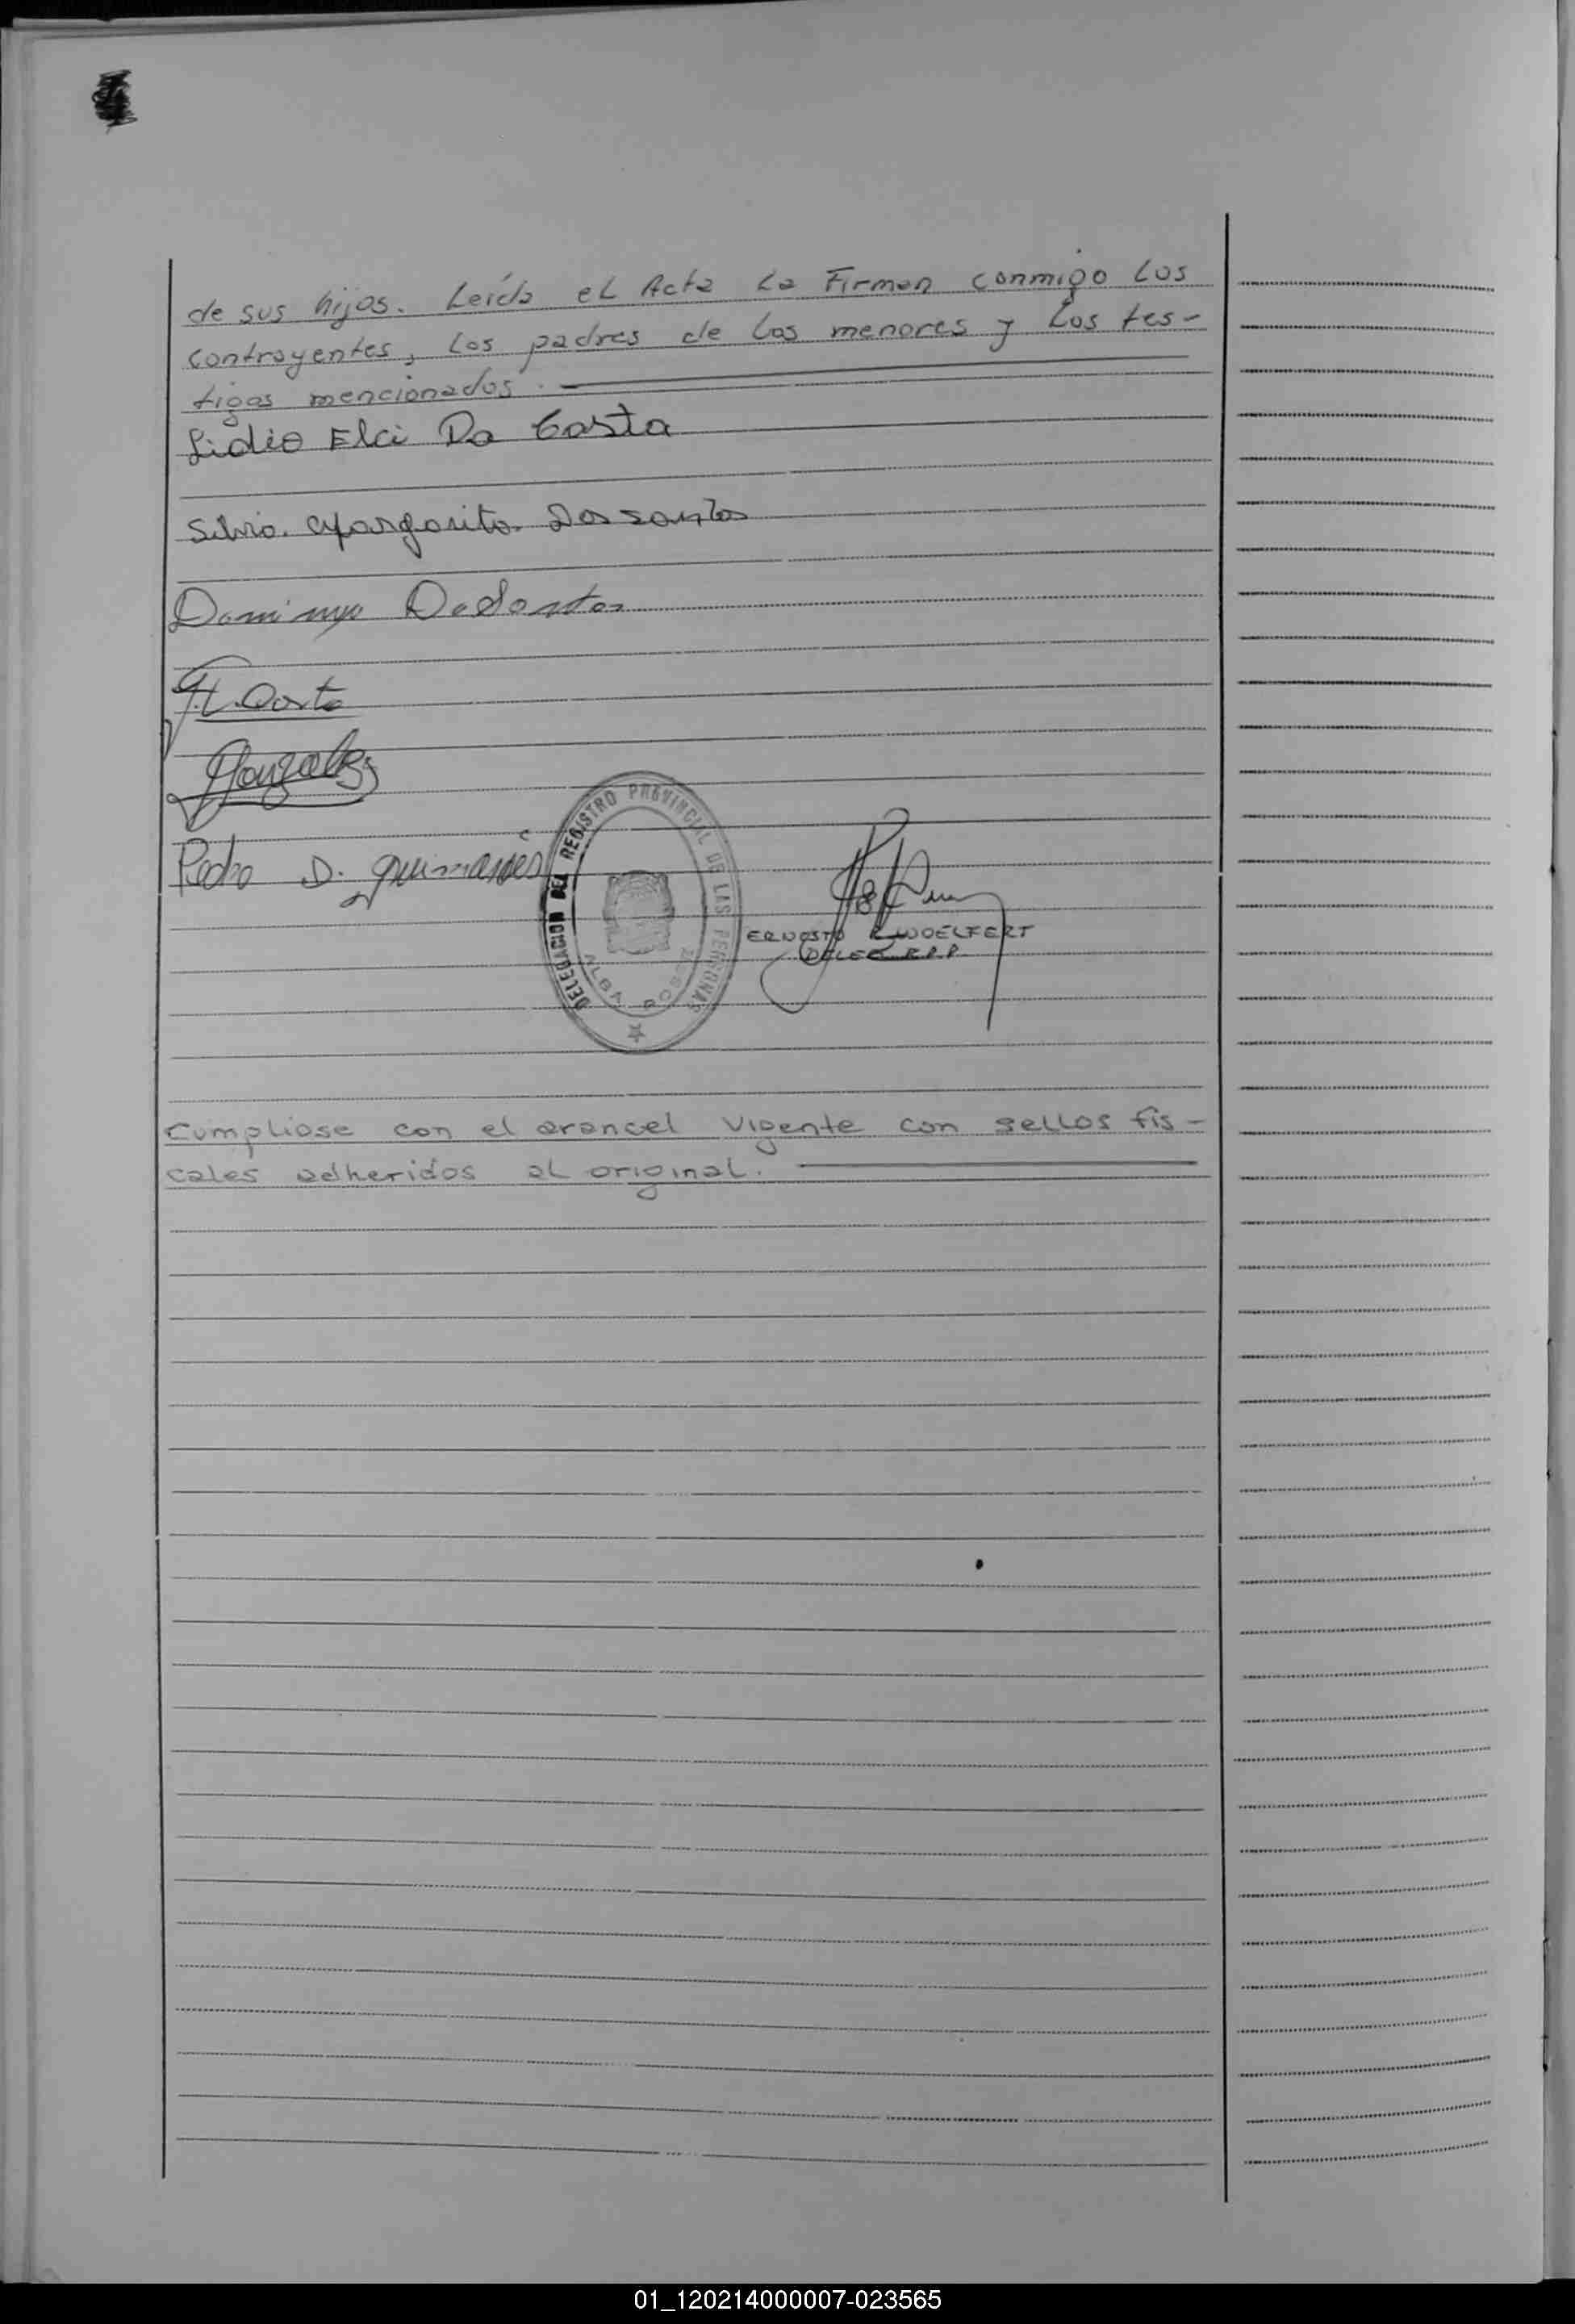 de sus hijos. Leída el Acta la Firman conmigo los
contrayentes, los padres de los menores y los tes-
tigos mencionados.
Lidio Elci Da Costa
Silvia Margarita Dos santos
Domingo DoSantos
Costa
Gonzalez
Pedro D. guimarães
DELEGACION DEL REGISTRO PROVINCIAL DE LAS PERSONAS
ALBA POSSE
ERNESTO R WOELFERT
DELEG. R.P.P.
Cumpliose con el arancel vigente con sellos fis-
cales adheridos al original.
01_120214000007-023565